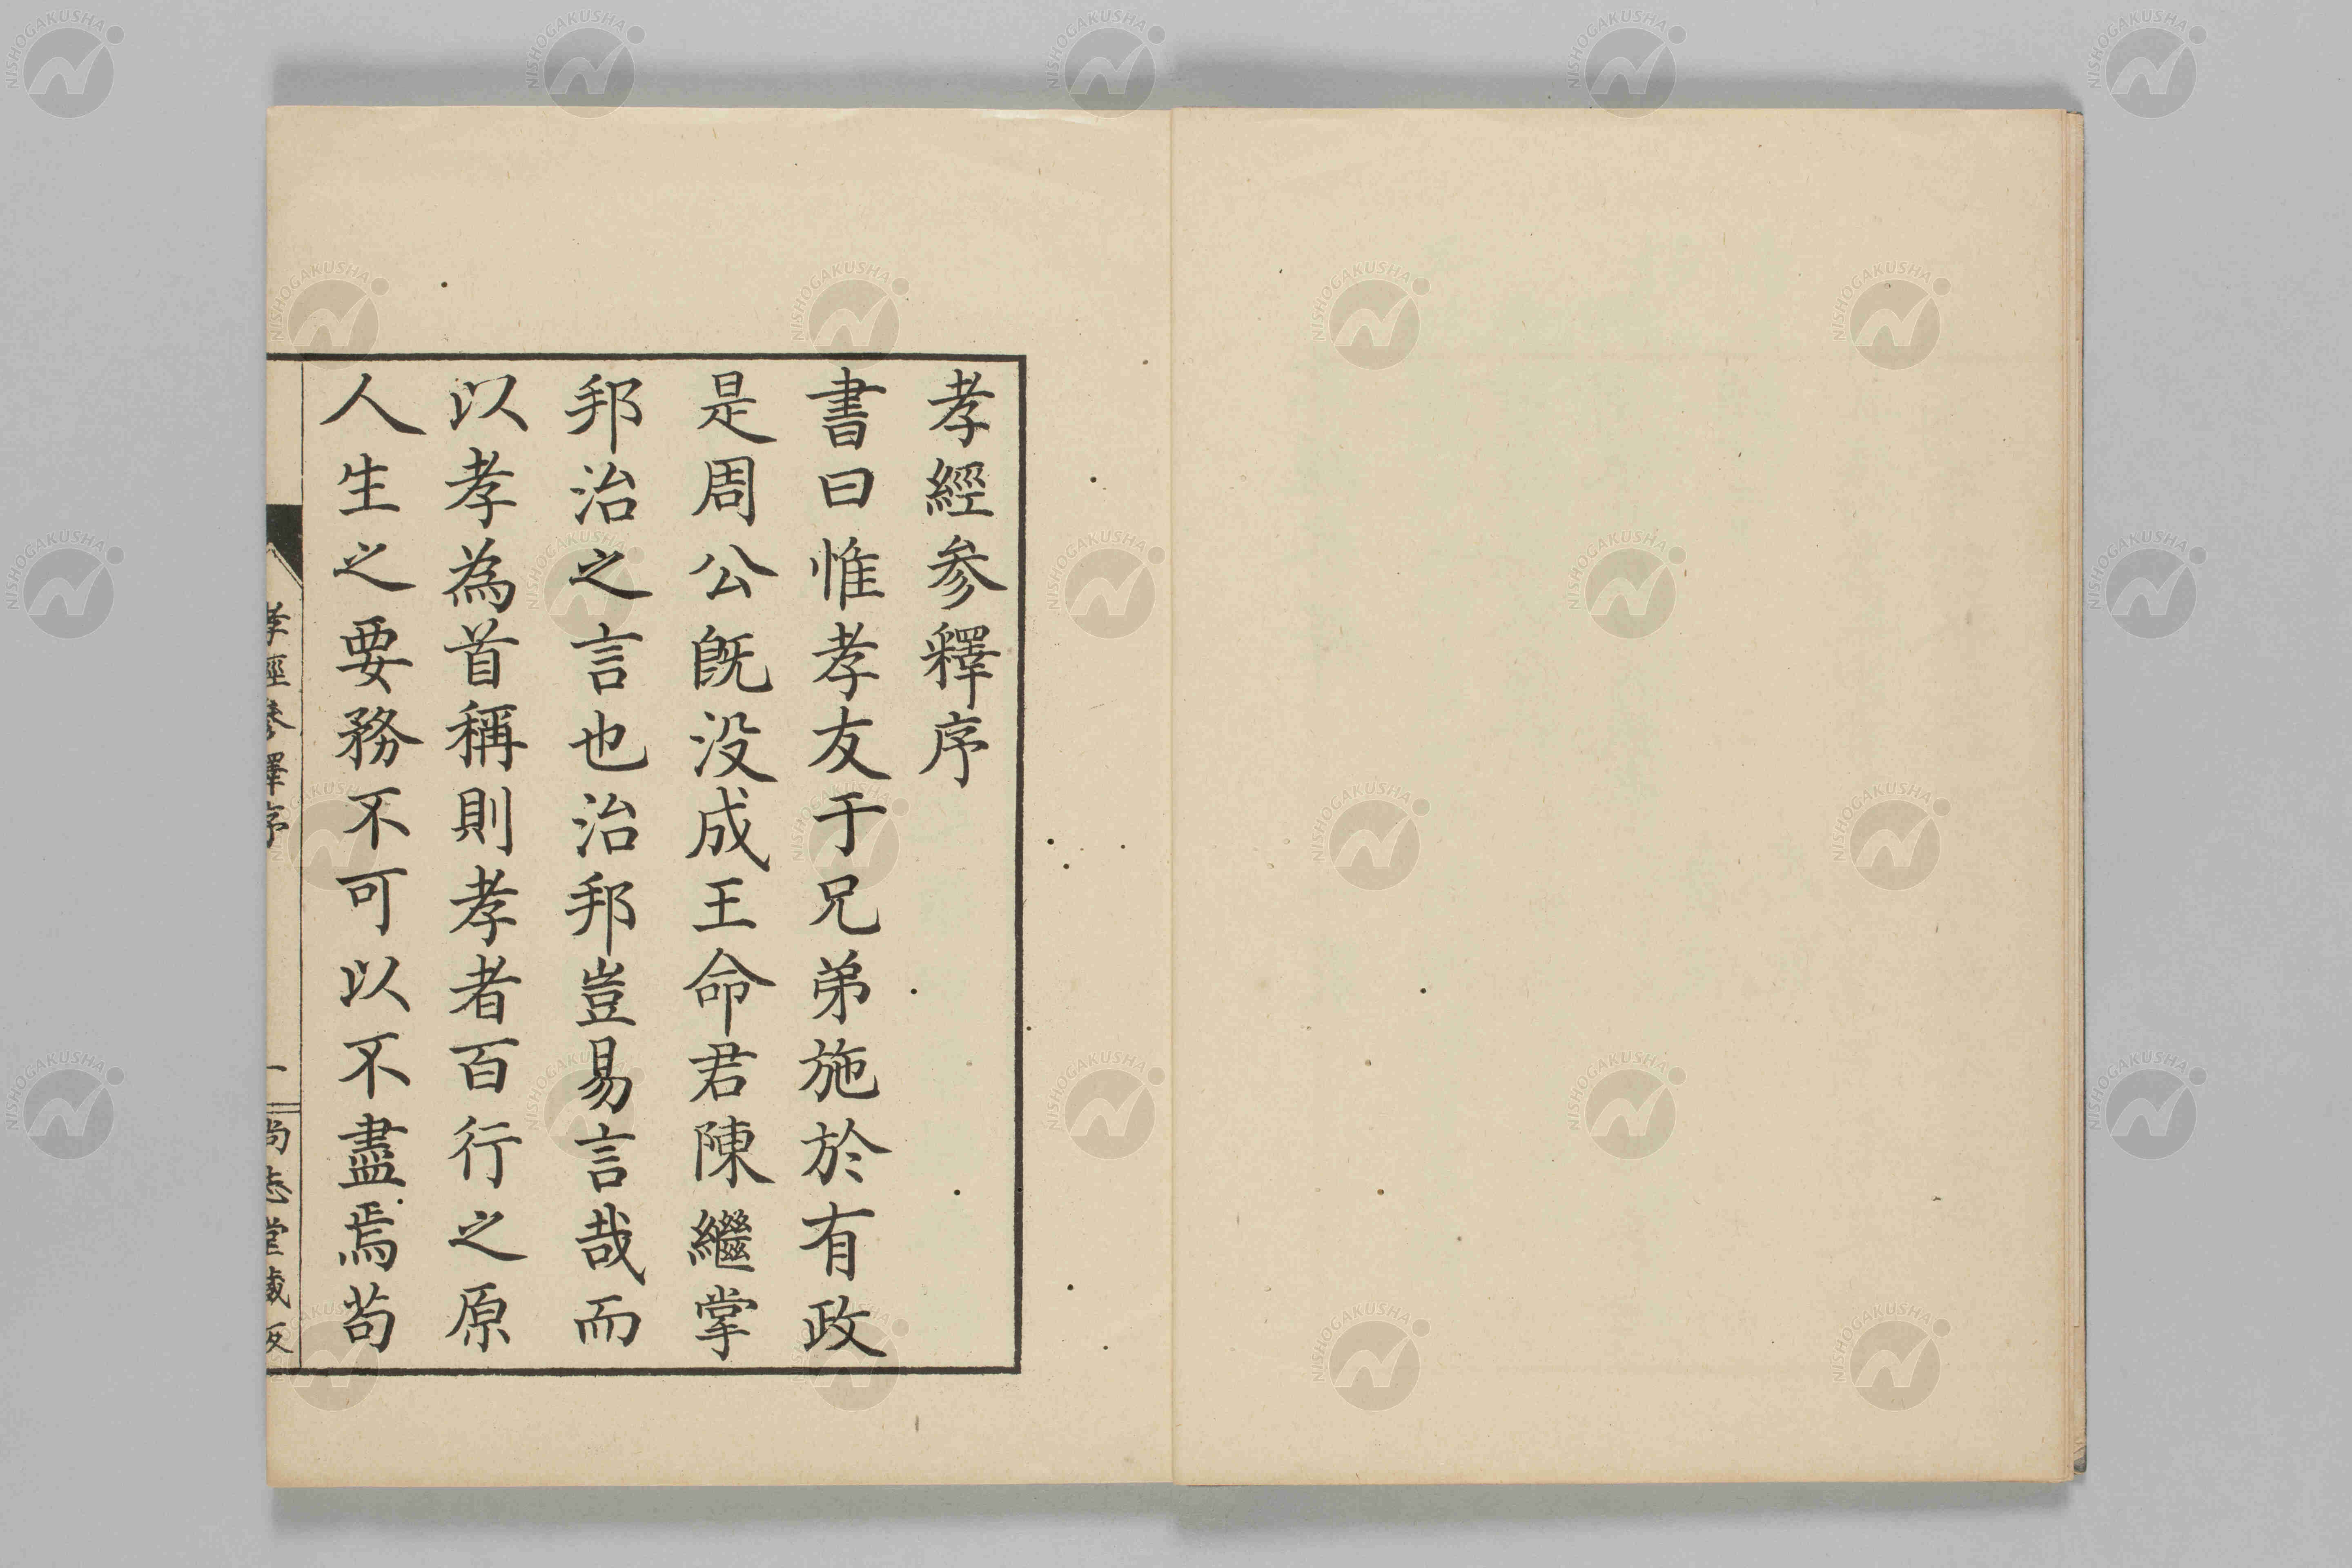 孝經参釋序
書曰惟孝友于兄弟施於有政
是周公既没成王命君陳繼掌
邦治之言也治邦豈易言哉而
以孝為首稱則孝者百行之原
人生之要務不可以不盡焉苟
孝經參釋序
一
尚志堂藏版
NISHOGAKUSHA